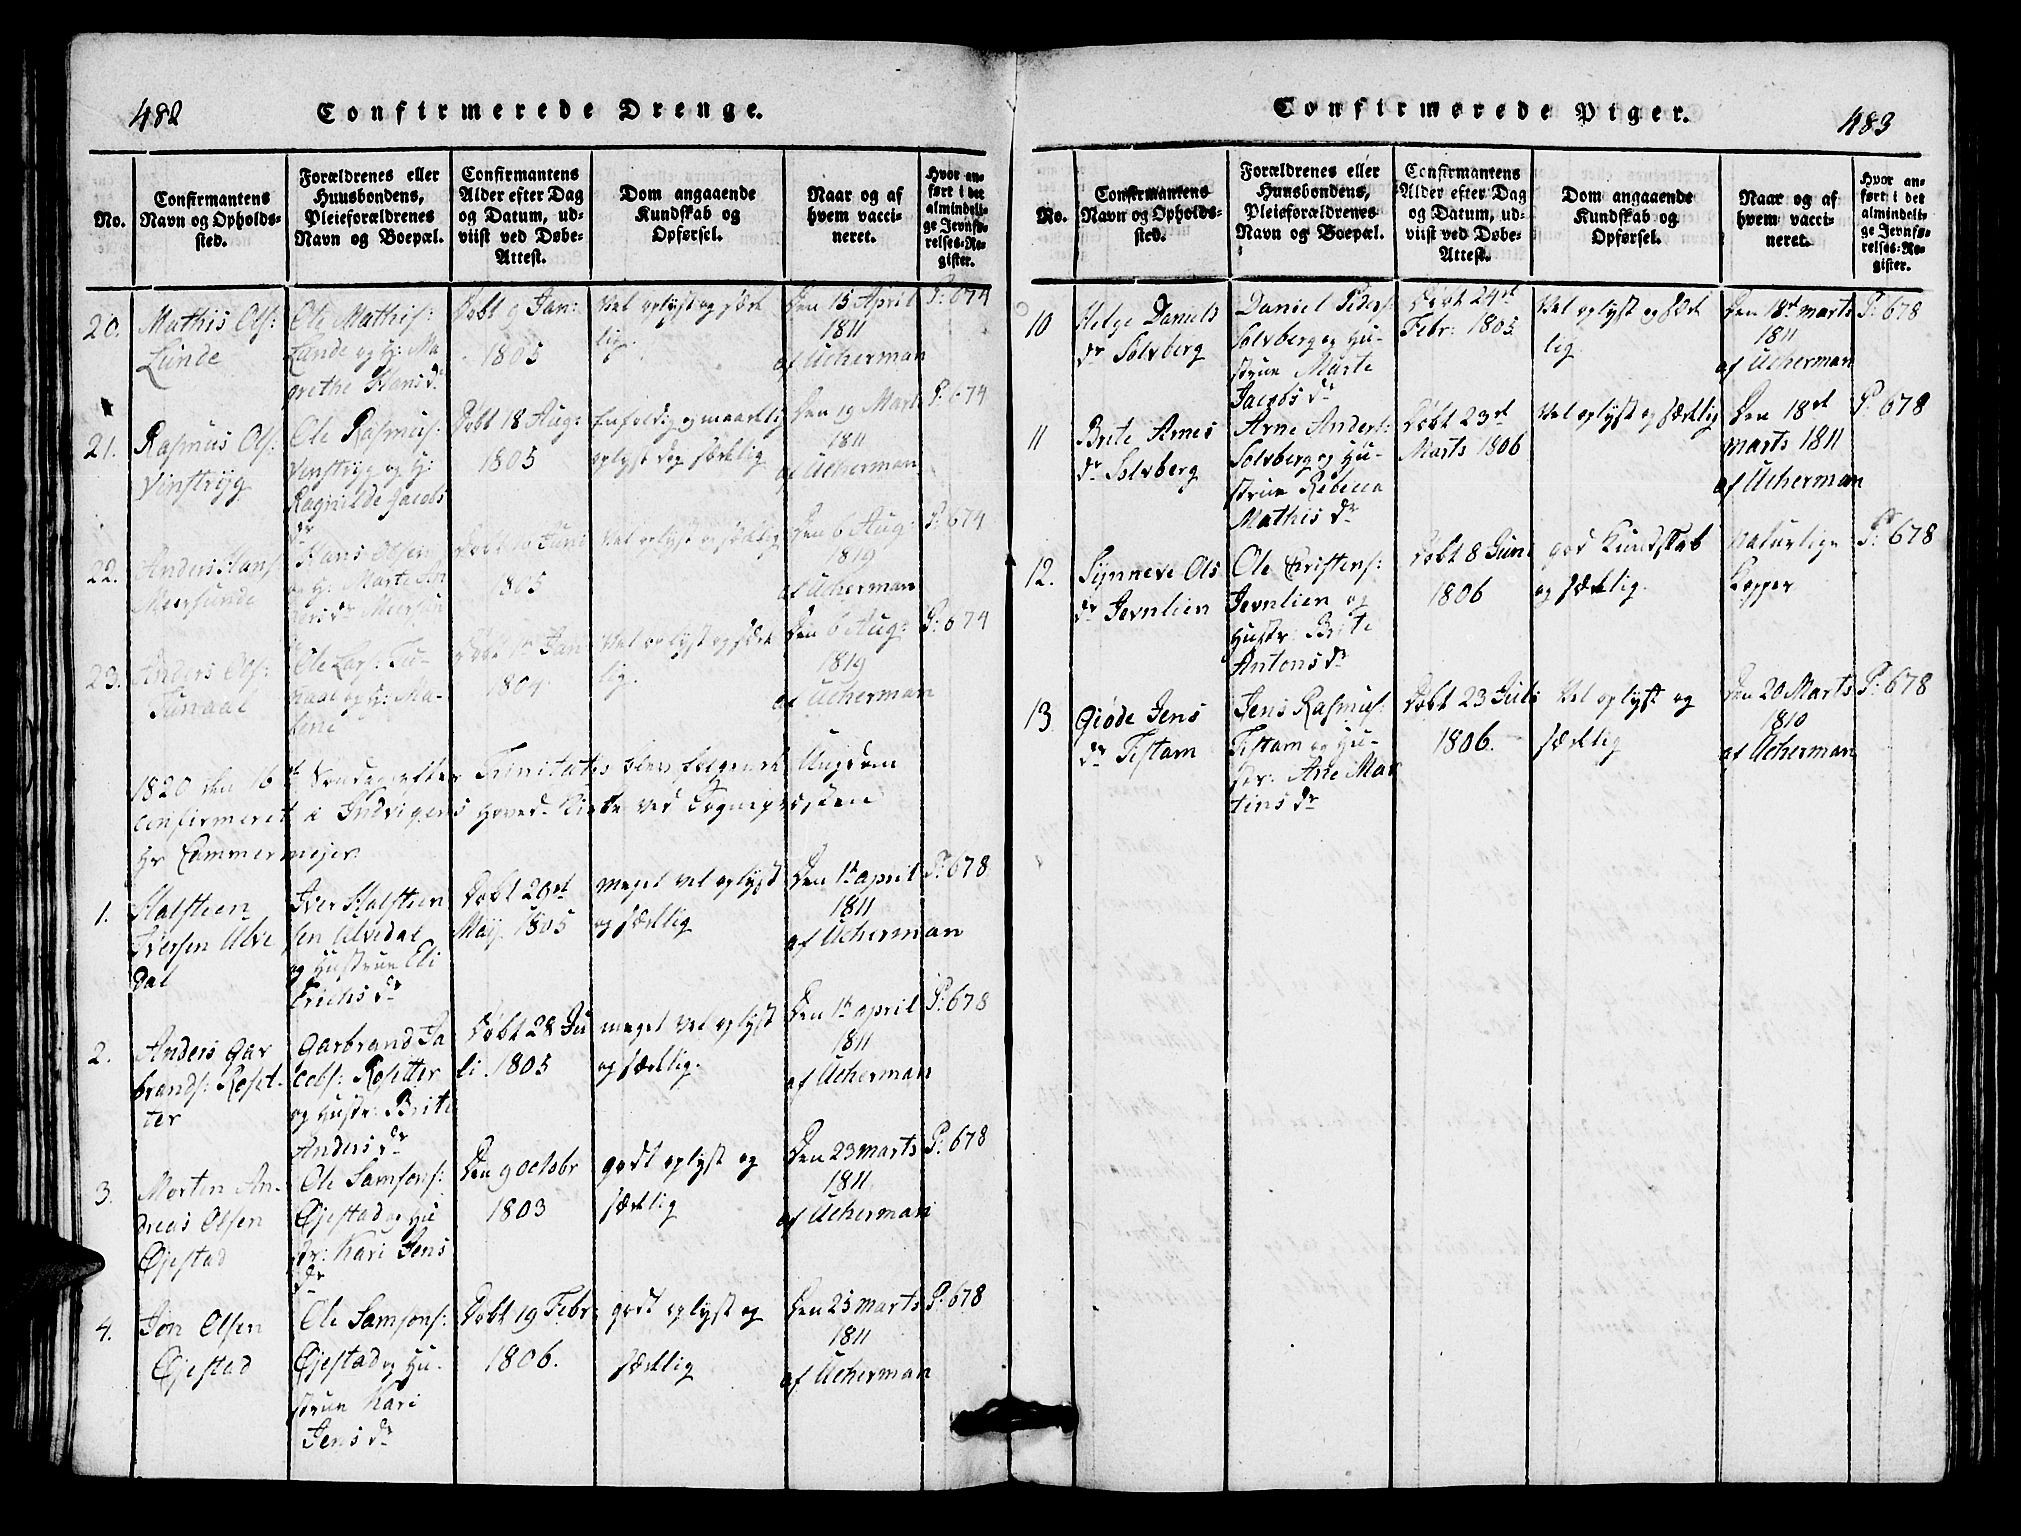 482
Confirmerede Drenge.
No.
Confirmantens
Navn og Opholds-
sted.
Forældrenes eller
Huusbondens,
Pleieforældrenes
Navn og Boepæl.
Confirmantens
Alder efter Dag
og Datum, ud-
viist ved Døbe-
Attest.
Dom angaaende
Kundskab og
Opførsel.
Naar og af
hvem vacci-
neret.
Hvor an-
ført i det
almindeli-
ge Jevnfø-
relses-Re-
gister.
20.
Mathis Ols:
Lunde
Ole Mathis:
Lunde og H: Ma
grethe Hans dr
Døbt 9 Jan:
1805
Vel oplyst og sæde
lig.
Den 15 April
1811
af Ucherman
P: 674
21.
Rasmus Ols:
Vinstryg
Ole Rasmus:
Vinstryg og H:
Ragnilde Jacobs
dr
Døbt 18 Aug:
1805
Enfoldig og maadelig
oplyst dog sædelig
Den 19 Mart
1811
af Ucherman
P: 674
22.
Anders Hans
Meersunde
Hans Olsen
og H: Marte An
ders dr Meersun
Døbt 10 Juni
1805
Vel oplyst og sædelig
Den 6 Aug:
1819
af Ucherman
P: 674
23.
Anders Ols:
Tunaal
Ole Lars: Tu-
naal og H: Ma-
lene
1804.
Vel oplyst og sæde
lig.
Den 6 Aug:
1819
af Ucherman
P: 674
1820 den 16de Søndag efter Trinitatis blev følgende Ungdom
confirmeret i Indvigens Hoved-Kirke ved Sognepræsten
Hr Cammermejer.
1.
Halsteen
Iversen Alve
dal
Iver Halsteen
sen Alvedal
og Hustrue Eli
Erichs dr
Døbt 20de
Maij 1805
meget vel oplyst
og sædelig
Den 1te april
1811
af Ucherman
P: 678
2.
Anders Gar
brands: Roset-
ter
Garbrand Ja
cobs: Rosetter
og Hustr: Brite
Anders dr
Døbt 28 Ju
li. 1805
meget vel oplyst
og sædelig.
Den 1te april
1811
af Ucherman
P: 678
3.
Morten An-
dreas Olsen
Øjestad
Ole Samsons:
Øjestad og Hu
str: Kari Jens
dr
Den 9 octobr
1803
godt oplyst og
sædelig
Den 23 marts
1811
af Ucherman
P: 678
4.
Jon Olsen
Øjestad
Ole Samsons:
Øjestad og Hu-
strue Kari
Jens dr
Døbt 19 Febr:
1806.
godt oplyst og
sædelig
Den 25 marts
1811
af Ucherman
P: 678
Confirmerede Piger.
483
No.
Confirmantens
Navn og Opholds-
sted.
Forældrenes eller
Huusbondens,
Pleieforældrenes
Navn og Boepæl.
Confirmantens
Alder efter Dag
og Datum, ud-
viist ved Døbe-
Attest.
Dom angaaende
Kundskab og
Opførsel.
Naar og af
hvem vacci-
neret.
Hvor an-
ført i det
almindeli-
ge Jevnfø-
relses-Re-
gister.
10
Helge Daniels
dr Solvberg
Daniel Peders:
Solvberg og Hu-
strue Marte
Jacobs dr
Døbt 24de
Febr: 1805.
Vel oplyst og sæde
lig
Den 18de marts
1811
af Ucherman
P: 678
11
Brite Arnes
dr Solvberg
Arne Anders:
Solvberg og Hu-
strue Rebecca
Mathis dr
Døbt 23de
Marts 1806
Vel oplyst og sædelig
Den 18de
marts 1811
af Ucherman
P: 678
12.
Synneve Ols
dr Jevnlien
Ole Cristens:
Jevnlien og
Hustr: Brite
Antons dr
Døbt 8 Juni
1806
god Kundskab
og sædelig.
Naturlige
Kopper
P: 678
13
Giøde Jens
dr Tistam
Jens Rasmus:
Tistam og Hu-
str: Ane Mar
tins dr
Døbt 23 Juli
1806.
Vel oplyst og
sædelig
Den 20 Marts
1810
af Ucherman
P: 678